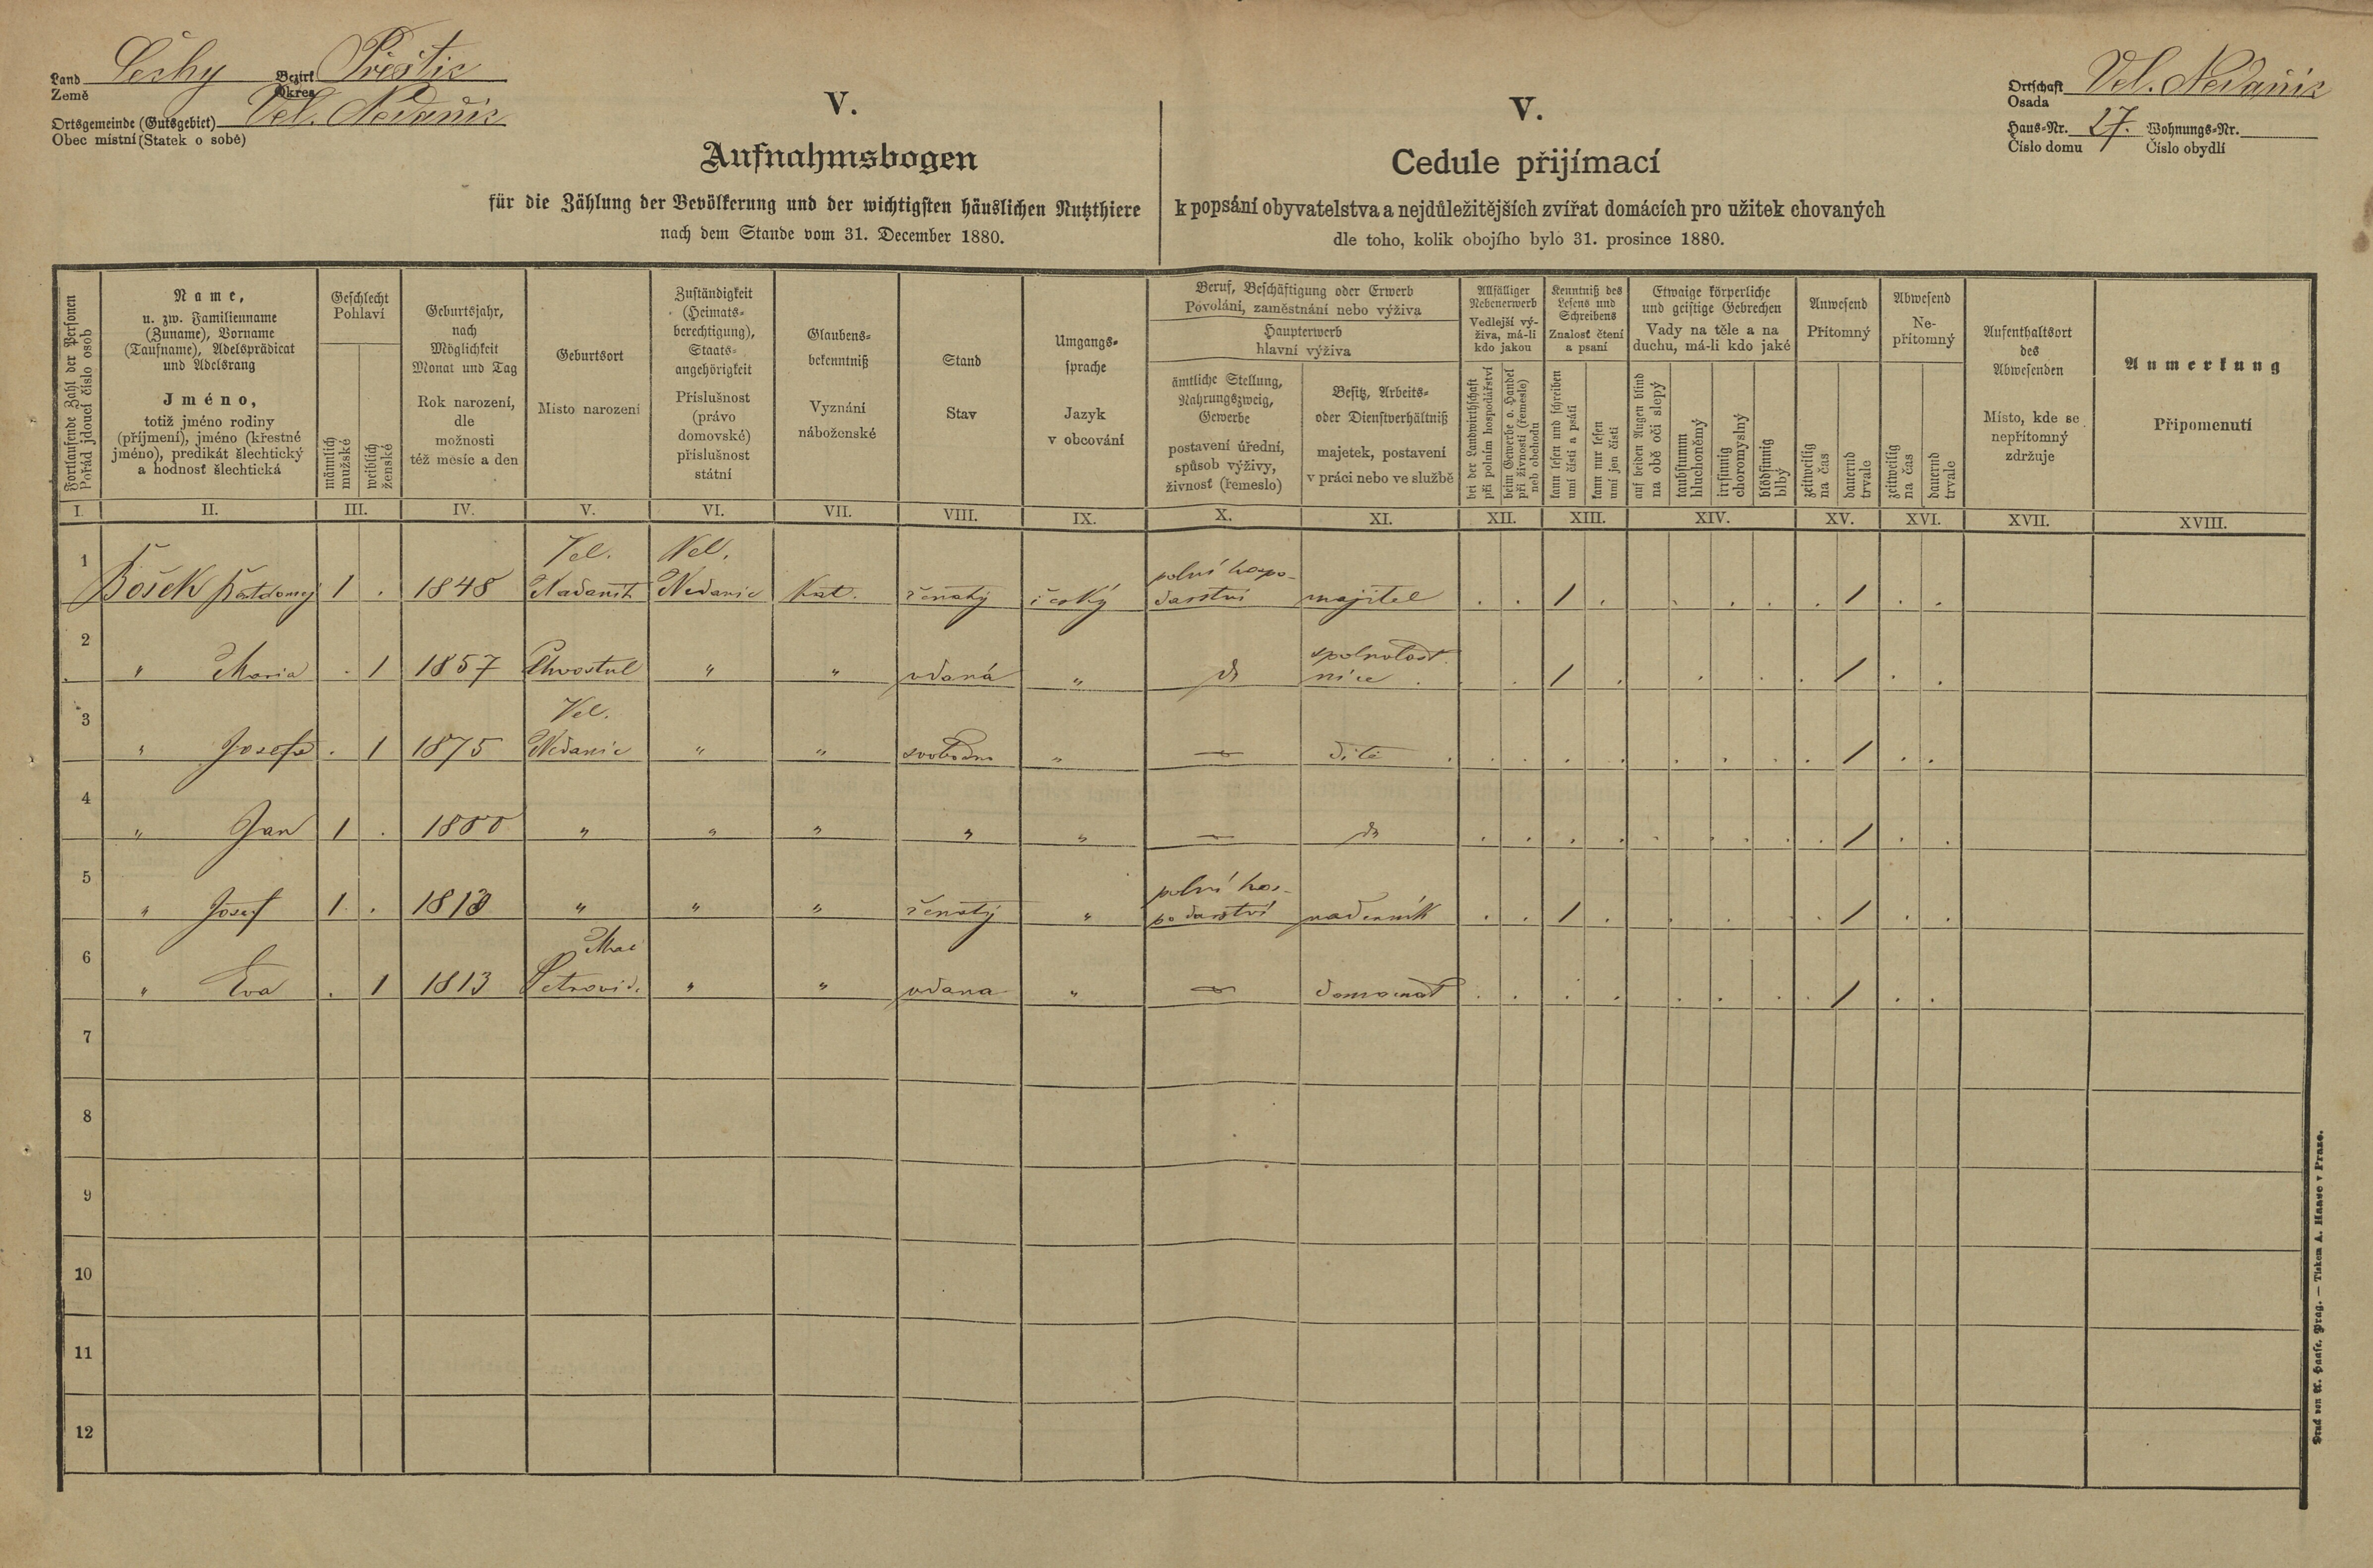 Land Čechy Bezirk Přestic
Země Okres
Ortsgemeinde (Gutsgebiet) Vel. Nedanic
Obec místní (Statek o sobě)
Ortschaft Vel. Nedanic
Osada
Haus-Nr. 27. Wohnungs-Nr.
Číslo domu Číslo obydlí
V.
Aufnahmsbogen
für die Zählung der Bevölkerung und der wichtigsten häuslichen Nutzthiere
nach dem Stande vom 31. December 1880.
V.
Cedule přijímací
k popsání obyvatelstva a nejdůležitějších zvířat domácích pro užitek chovaných
dle toho, kolik obojího bylo 31. prosince 1880.
Fortlaufende Zahl der Personen
Pořád jdoucí číslo osob
Name,
u. zw. Familienname
(Zuname), Vorname
(Taufname), Adelsprädicat
und Adelsrang
Jméno,
totiž jméno rodiny
(příjmení), jméno (křestné
jméno), predikát šlechtický
a hodnosť šlechtická
Geschlecht
Pohlaví
männlich
mužské
weiblich
ženské
Geburtsjahr,
nach
Möglichkeit
Monat und Tag
Rok narození,
dle
možnosti
též měsíc a den
Geburtsort
Místo narození
Zuständigkeit
(Heimats-
berechtigung),
Staats-
angehörigkeit
Příslušnost
(právo
domovské)
příslušnost
státní
Glaubens-
bekenntniß
Vyznání
náboženské
Stand
Stav
Umgangs-
sprache
Jazyk
v obcování
Beruf, Beschäftigung oder Erwerb
Povolání, zaměstnání nebo výživa
Haupterwerb
hlavní výživa
ämtliche Stellung,
Nahrungszweig,
Gewerbe
postavení úřední,
spůsob výživy,
živnosť (řemeslo)
Besitz, Arbeits-
oder Dienstverhältniß
majetek, postavení
v práci nebo ve službě
Allfälliger
Nebenerwerb
Vedlejší vý-
živa, má-li
kdo jakou
bei der Landwirthschaft
při polním hospodářství
beim Gewerbe o. Handel
při živnosti (řemesle)
neb obchodu
Kenntniß des
Lesens und
Schreibens
Znalosť čtení
a psaní
kann lesen und schreiben
umí čísti a psáti
kann nur lesen
umí jen čísti
Etwaige körperliche
und geistige Gebrechen
Vady na těle a na
duchu, má-li kdo jaké
auf beiden Augen blind
na obě oči slepý
taubstumm
hluchoněmý
irrsinnig
choromyslný
blödsinnig
blbý
Anwesend
Přítomný
zeitweilig
na čas
dauernd
trvale
Abwesend
Ne-
přítomný
zeitweilig
na čas
dauernd
trvale
Aufenthaltsort
des
Abwesenden
Místo, kde se
nepřítomný
zdržuje
Anmerkung
Připomenutí
I. II. III. IV. V. VI. VII. VIII. IX. X. XI. XII. XIII. XIV. XV. XVI. XVII. XVIII.
1 Vel. Vel. polní hospo-
Bošek 1 . 1848 Nedanic Kat. ženatý český dářství majitel . . 1 . . . . . . 1 . .
2 spolumajit
" Maria . 1 1857 " " vdaná " nice . . 1 . . . . 1 . .
3 Vel.
" Josefa . 1 1875 Nedanic " " svobodna " — dítě . . . . . . . . . 1 . .
4
" Jan 1 . 1880 " " " " " — . . . . . . . . . 1 . .
5 polní hos-
" Josef 1 . " " " ženatý " podařství . . 1 . . . . . 1 . .
6
" Eva . 1 1813 " " vdana " — . . . . . . . . 1 . .
7
8
9
10
11
12
Druck von A. Haase, Prag. — Tiskem A. Haase v Praze.